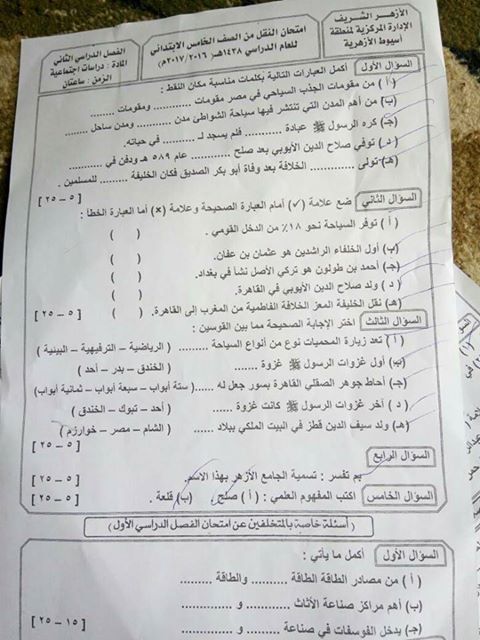 الأزهر الشريف
الإدارة المركزية لمنطقة
أسيوط الأزهرية
امتحان النقل من الصف الخامس الابتدائي
للعام الدراسي ١٤٣٨هـ (٢٠١٦ / ٢٠١٧م)
الفصل الدراسي الثاني
المادة : دراسات اجتماعية
الزمن : ساعتان
السؤال الأول أكمل العبارات التالية بكلمات مناسبة مكان النقط :
(أ) من مقومات الجذب السياحي في مصر مقومات .......... ومقومات ........
(ب) من أهم المدن التي تنتشر فيها سياحة الشواطئ مدن .......... ومدن ساحل ........
(جـ) كره الرسول ﷺ عبادة .......... فلم يسجد لـ .......... في حياته.
(د) توفي صلاح الدين الأيوبي بعد صلح .......... عام ٥٨٩ هـ ودفن في ........
(هـ) تولى .......... الخلافة بعد وفاة أبو بكر الصديق فكان الخليفة ........ للمسلمين .
[ ٥ – ٢٥ ]
السؤال الثاني ضع علامة (✓) أمام العبارة الصحيحة وعلامة (×) أما العبارة الخطأ :
(أ) توفر السياحة نحو ١٨٪ من الدخل القومي . ( )
(ب) أول الخلفاء الراشدين هو عثمان بن عفان. ( )
(جـ) أحمد بن طولون هو تركي الأصل نشأ في بغداد. ( )
(د) ولد صلاح الدين الأيوبي في القاهرة. ( )
(هـ) نقل الخليفة المعز الخلافة الفاطمية من المغرب إلى القاهرة. ( )
[ ٥ – ٢٥ ]
السؤال الثالث اختر الإجابة الصحيحة مما بين القوسين :
(أ) تعد زيارة المحميات نوع من أنواع السياحة ......... ( الرياضية – الترفيهية – البيئية )
(ب) أول غزوات الرسول ﷺ غزوة ....... ( الخندق – بدر – أحد )
(جـ) أحاط جوهر الصقلي القاهرة بسور جعل له .....( ستة أبواب – سبعة أبواب – ثمانية أبواب)
(د) آخر غزوات الرسول ﷺ كانت غزوة ...... ( أحد – تبوك – الخندق )
(هـ) ولد سيف الدين قطز في البيت الملكي ببلاد ...... ( الشام – مصر – خوارزم )
[ ٥ – ٢٥ ]
السؤال الرابع
بم تفسر : تسمية الجامع الأزهر بهذا الاسم.
[ ٥ – ٢٥ ]
السؤال الخامس اكتب المفهوم العلمي : (أ) صلح. (ب) قلعة .
[ ٥ – ٢٥ ]
( أسئلة خاصة بالمتخلفين عن امتحان الفصل الدراسي الأول )
السؤال الأول أكمل ما يأتي :
(أ) من مصادر الطاقة الطاقة .......... والطاقة ..........
(ب) أهم مراكز صناعة الأثاث .......... و ..........
(جـ) يدخل الفوسفات في صناعة .......... و ..........
[ ١٥ – ٢٥ ]